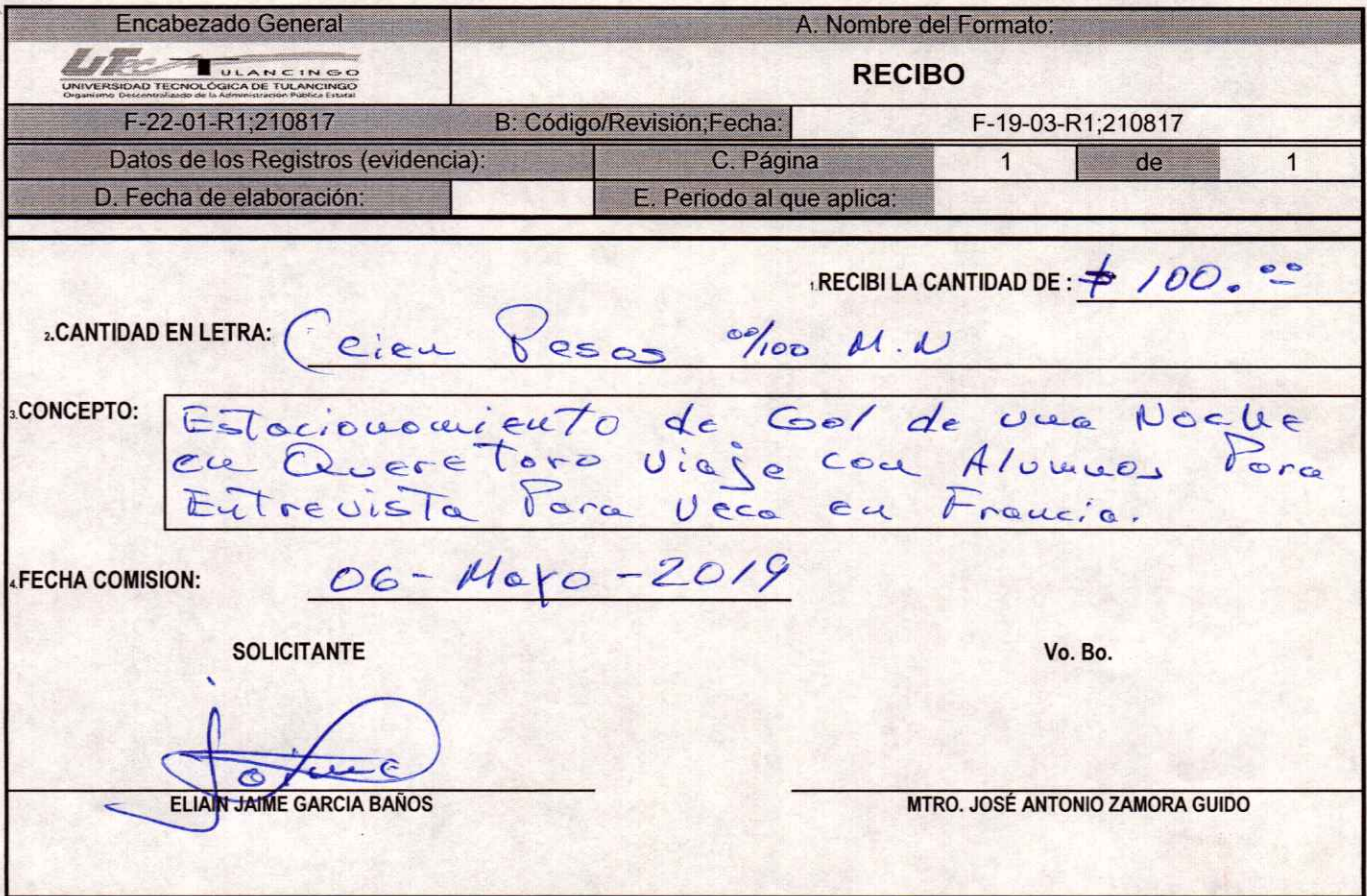 Encabezado General
A. Nombre del Formato:
UTec TULANCINGO
UNIVERSIDAD TECNOLÓGICA DE TULANCINGO
Organismo Descentralizado de la Administración Pública Estatal
RECIBO
F-22-01-R1;210817 B: Código/Revisión;Fecha: F-19-03-R1;210817
Datos de los Registros (evidencia): C. Página 1 de 1
D. Fecha de elaboración: E. Periodo al que aplica:
1.RECIBI LA CANTIDAD DE : $ 100.00
2.CANTIDAD EN LETRA: (cien Pesos 00/100 M.N
3.CONCEPTO: Estacionamiento de Gol de una Noche
en Queretaro Viaje con Alumnos Para
Entrevista Para Veca en Francia.
4.FECHA COMISION: 06-Mayo-2019
SOLICITANTE Vo. Bo.
Jaime
ELIAIN JAIME GARCIA BAÑOS MTRO. JOSÉ ANTONIO ZAMORA GUIDO